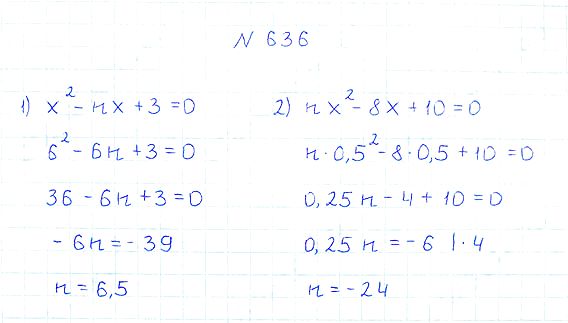 N 636
1) x² - nx + 3 = 0
6² - 6n + 3 = 0
36 - 6n + 3 = 0
- 6n = - 39
n = 6,5
2) nx² - 8x + 10 = 0
n · 0,5² - 8 · 0,5 + 10 = 0
0,25n - 4 + 10 = 0
0,25 n = - 6 | · 4
n = - 24